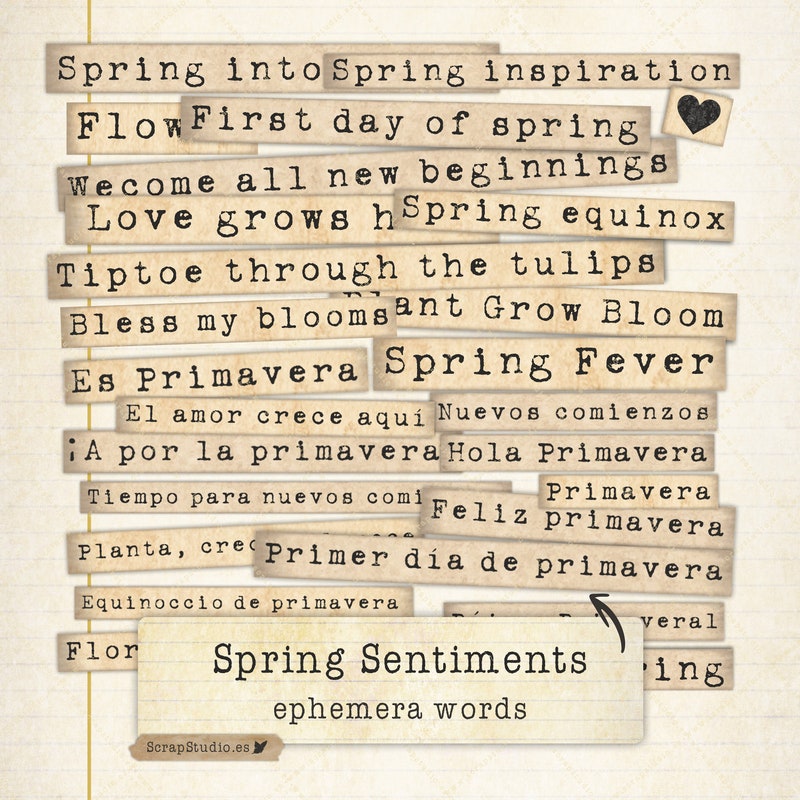 Spring into
Spring inspiration
Flow
First day of spring
Wecome all new beginnings
Love grows h
Spring equinox
Tiptoe through the tulips
Bless my blooms
Plant Grow Bloom
Es Primavera
Spring Fever
El amor crece aquí
Nuevos comienzos
¡A por la primavera
Hola Primavera
Tiempo para nuevos comi
Primavera
Feliz primavera
Planta, crec
Primer día de primavera
Equinoccio de primavera
veral
Flor
ring
Spring Sentiments
ephemera words
ScrapStudio.es